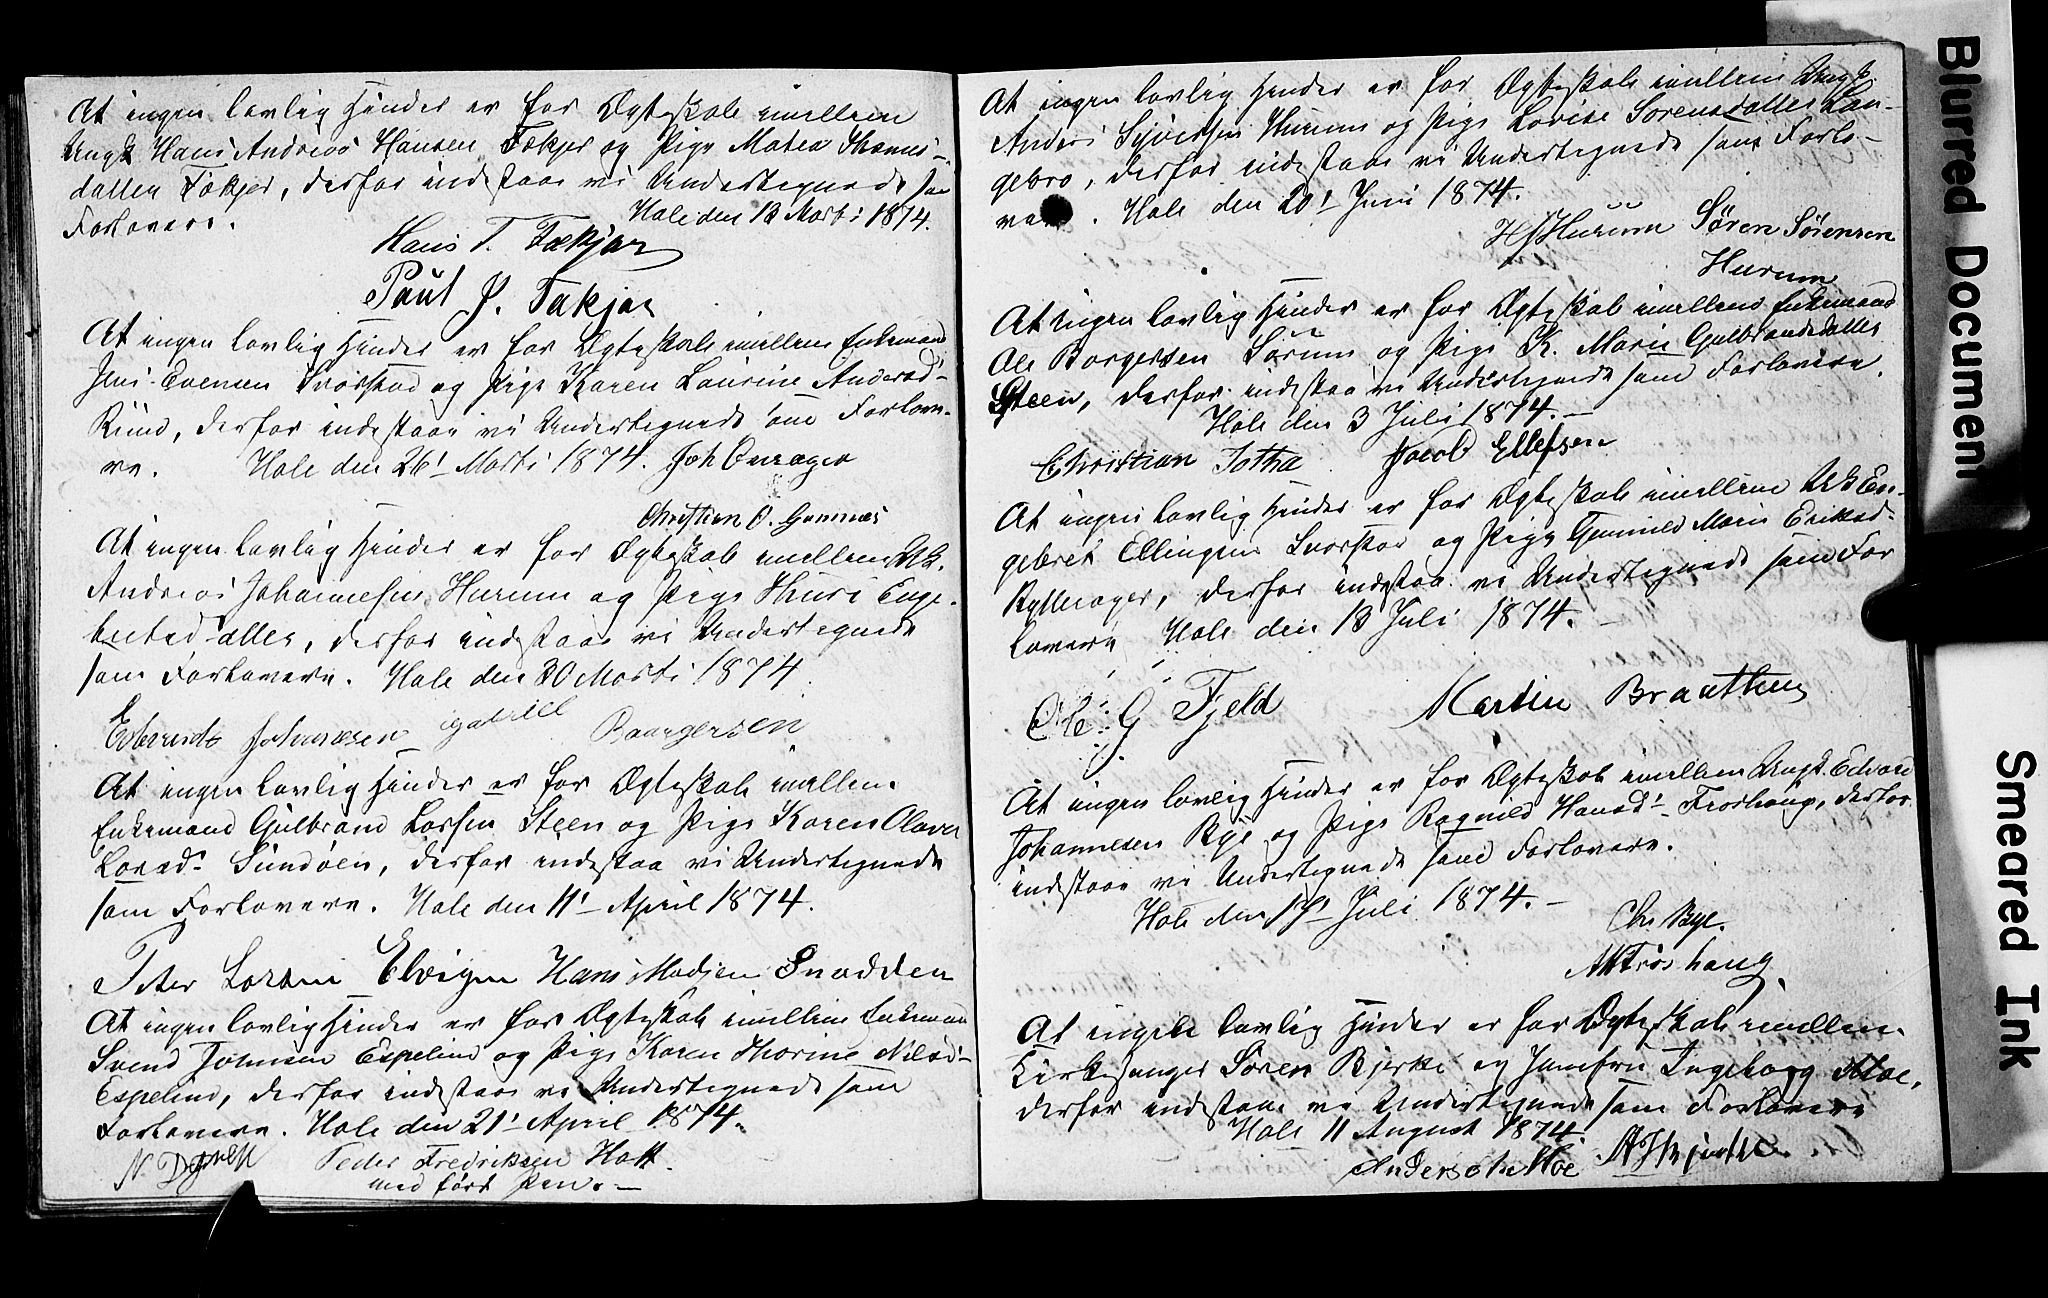 At ingen lovlig Hinder er for Ægteskab imellem
Ungk Hans Andreas Hansen Fækjær og Pige Matea Thomas-
datter Fækjer, derfor indestaae vi Undertegnede som
Forlovere. Hole den 13 Marts 1874.
Hans T. Fækjær
Paul J. Fækjær
At ingen lovlig Hinder er for Ægteskab imellem Enkemand
Jens Evensen Svarstad og Pige Karen Laurine Andersd-
Rûud, derfor indestaae vi Undertegnede som Forlove-
re. Hole den 26 Marts 1874. Joh
Christian O. Gomnæs
At ingen lovlig Hinder er for Ægteskab imellem Uk.
Andreas Johannesen Hurum og Pige Thuri Enge-
bretsdatter, derfor indestaae vi Undertegnede
som Forlovere. Hole den 30 Marts 1874
Johannesen gabriel Baargersen
At ingen lovlig Hinder er for Ægteskab imellem
Enkemand Gulbrand Larsen Steen og Pige Karen Olava
Larsd. Sundøen, derfor indestaa vi Undertegnede
som Forlovere. Hole den 11 April 1874.
Peter Larsen Elvigen Hans Madsen Snadden
At ingen lovlig Hinder er for Ægteskab imellem Enkemand
Svend Johnsen Espelien og Pige Karen Thorine Nilsd-
Espelien, derfor indestaae vi Undertegnede som
Forlovere. Hole den 21 April 1874.
N. Peder Fredriksen
med ført Pen.-
At ingen lovlig Hinder er for Ægteskab imellem Ungk.
Anders Syversen Hurum og Pige Lovise Sørensdatter
gebro, derfor indestaae vi Undertegnede som Forlo-
vere. Hole den 20 Juni 1874.
H Hurum Søren Sørensen
Hurum
At ingen lovlig Hinder er for Ægteskab imellem Enkemand
Ole Borgersen Sørum og Pige K. Marie Gulbrandsdatter
Steen, derfor indestaa vi Undertegnede som Forlovere.
Hole den 3 Juli 1874.-
Christian Jotha Jacob Ellefsen
At ingen lovlig Hinder er for Ægteskab imellem Uk En-
gebret Ellingsen Svarstad og Pige Gunnild Marie Eriksd.
Rytterager, derfor indestaa vi Undertegnede som For
lovere Hole den 13 Juli 1874.
Ole G Fjeld Martin Braathen
At ingen lovlig Hinder er for Ægteskab imellem Ungk. Edvard
Johannesen Bye og Pige Ragnild Hansd- Frøshaug, derfor
indestaae vi Undertegnede som Forlovere.
Hole den 17 Juli 1874.-
Chr Bye.
Frøshaug
At ingen lovlig Hinder er for Ægteskab imellem
Kirkesanger Søren Bjerke og Jomfru Ingeborg Moe,
derfor indestaae vi Undertegnede som Forlovere
Hole 11 August 1874.
Anders Moe
Blurred Document
Smeared Ink